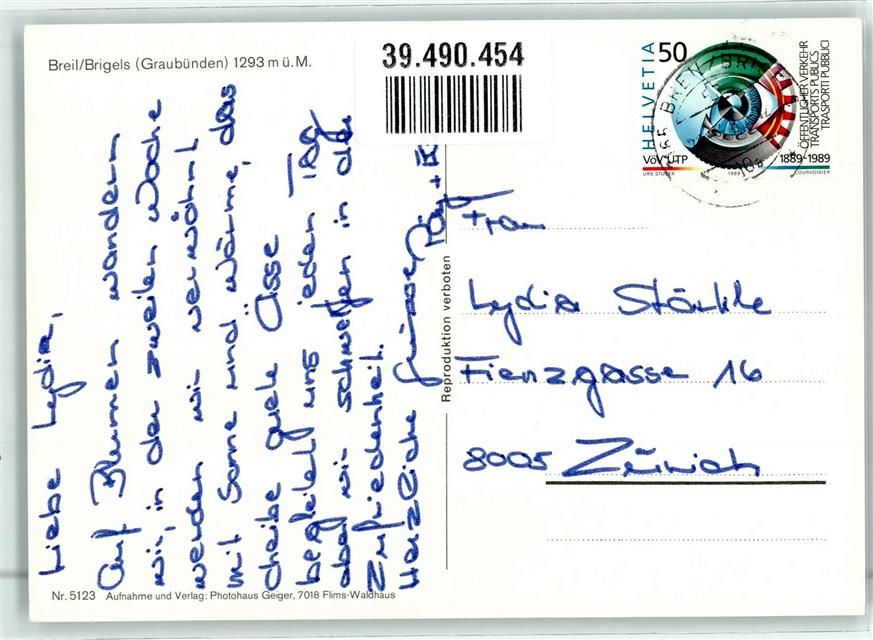 Breil/Brigels (Graubünden) 1293 m ü. M.
39.490.454
HELVETIA
50
VöV UTP
1889-1989
ÖFFENTLICHER VERKEHR
TRANSPORTS PUBLICS
TRASPORTI PUBBLICI
URS STUBER
1989
COURVOISIER
Liebe Lydia,
Auf Blumen wandern
wir, in der zweiten Woche
werden wir verwöhnt
mit Sonne und wärme, das
cheibe guete Ässe
begleitet uns jeden Tag
aber wir schwelgen in der
Zufriedenheit.
Herzliche Grüsse
Reproduktion verboten
Frau
Lydia Stärkle
Fienzgasse 16
8005 Zürich
Nr. 5123 Aufnahme und Verlag: Photohaus Geiger, 7018 Flims-Waldhaus